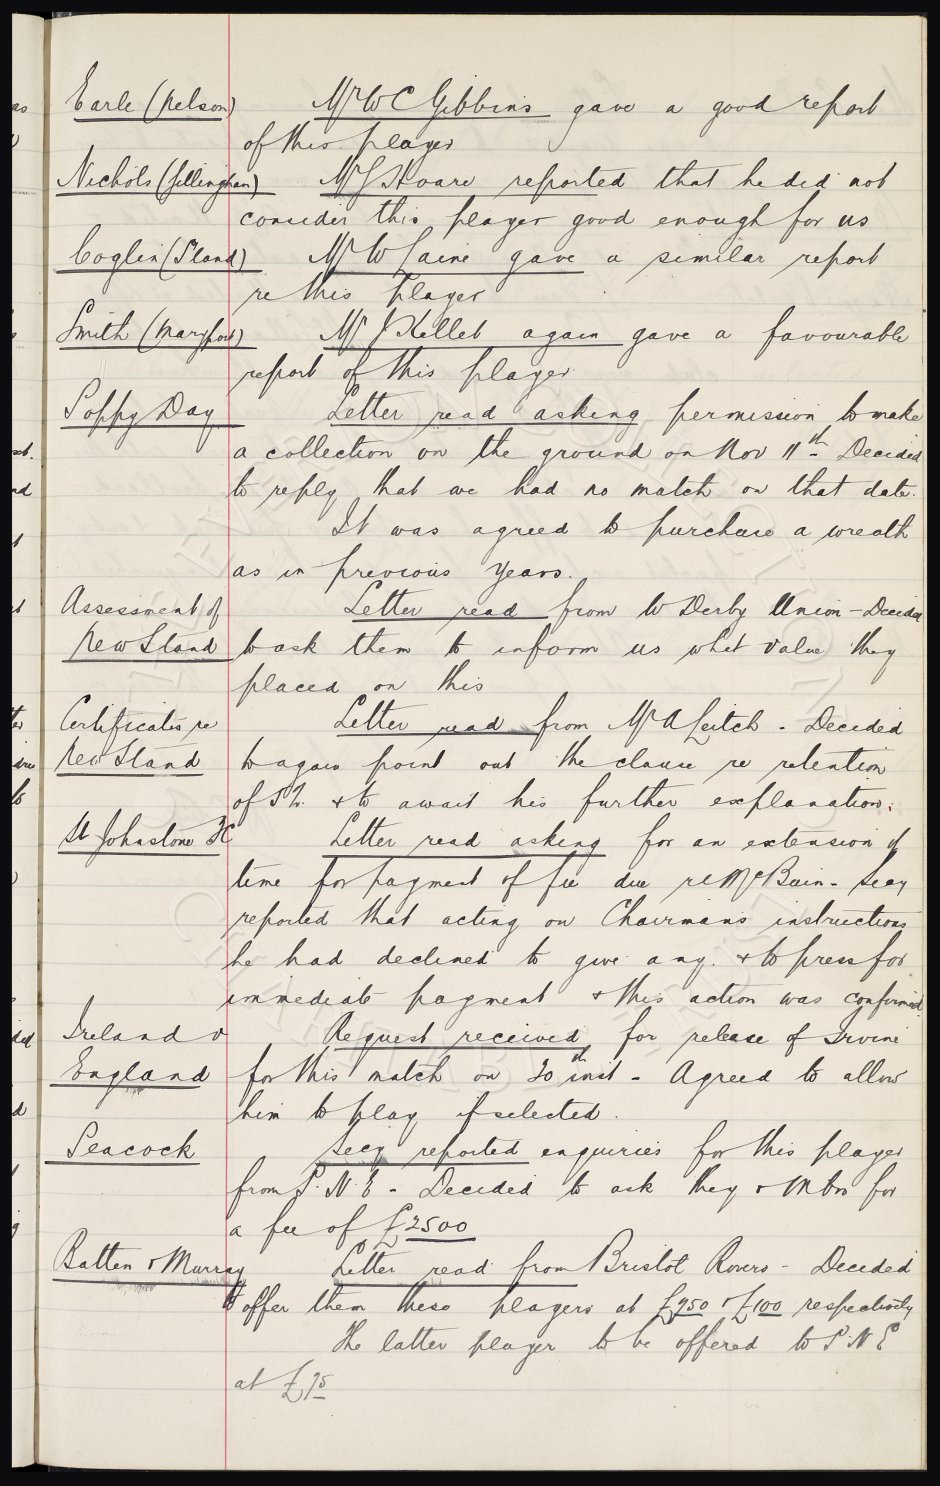 Earle (Nelson) Mr W C Gibbins gave a good report
of this player
Nichols (Gillingham) Mr J Hoare reported that he did not
consider this player good enough for us
Coglin (S'land) Mr W Caine gave a similar report
re this player
Smith (Maryport) Mr J Kellet again gave a favourable
report of this player
Poppy Day Letter read asking permission to make
a collection on the ground on Nov 11th Decided
to reply that we had no match on that date.
It was agreed to purchase a wreath
as in previous years.
Assessment of Letter read from W Derby Union - Decided
New Stand to ask them to inform us what value they
placed on this
Certificates re Letter read from Mr A Leitch - Decided
New Stand to again point out the clause re retention
of & to await his further explanation.
St Johnstone FC Letter read asking for an extension of
time for payment of fee due re McBain - Secy
reported that acting on Chairmans instructions
he had declined to give any. & to press for
immediate payment & this action was confirmed
Ireland v Request received for release of Irvine
England for this match on 20th inst - Agreed to allow
him to play if selected.
Peacock Secy reported enquiries for this player
from P.N.E - Decided to ask they & Mtbro for
a fee of £2500
Batten & Murray Letter read from Bristol Rovers - Decided
to offer them these players at £250 & £100 respectively
The latter player to be offered to P.N.E
at £75